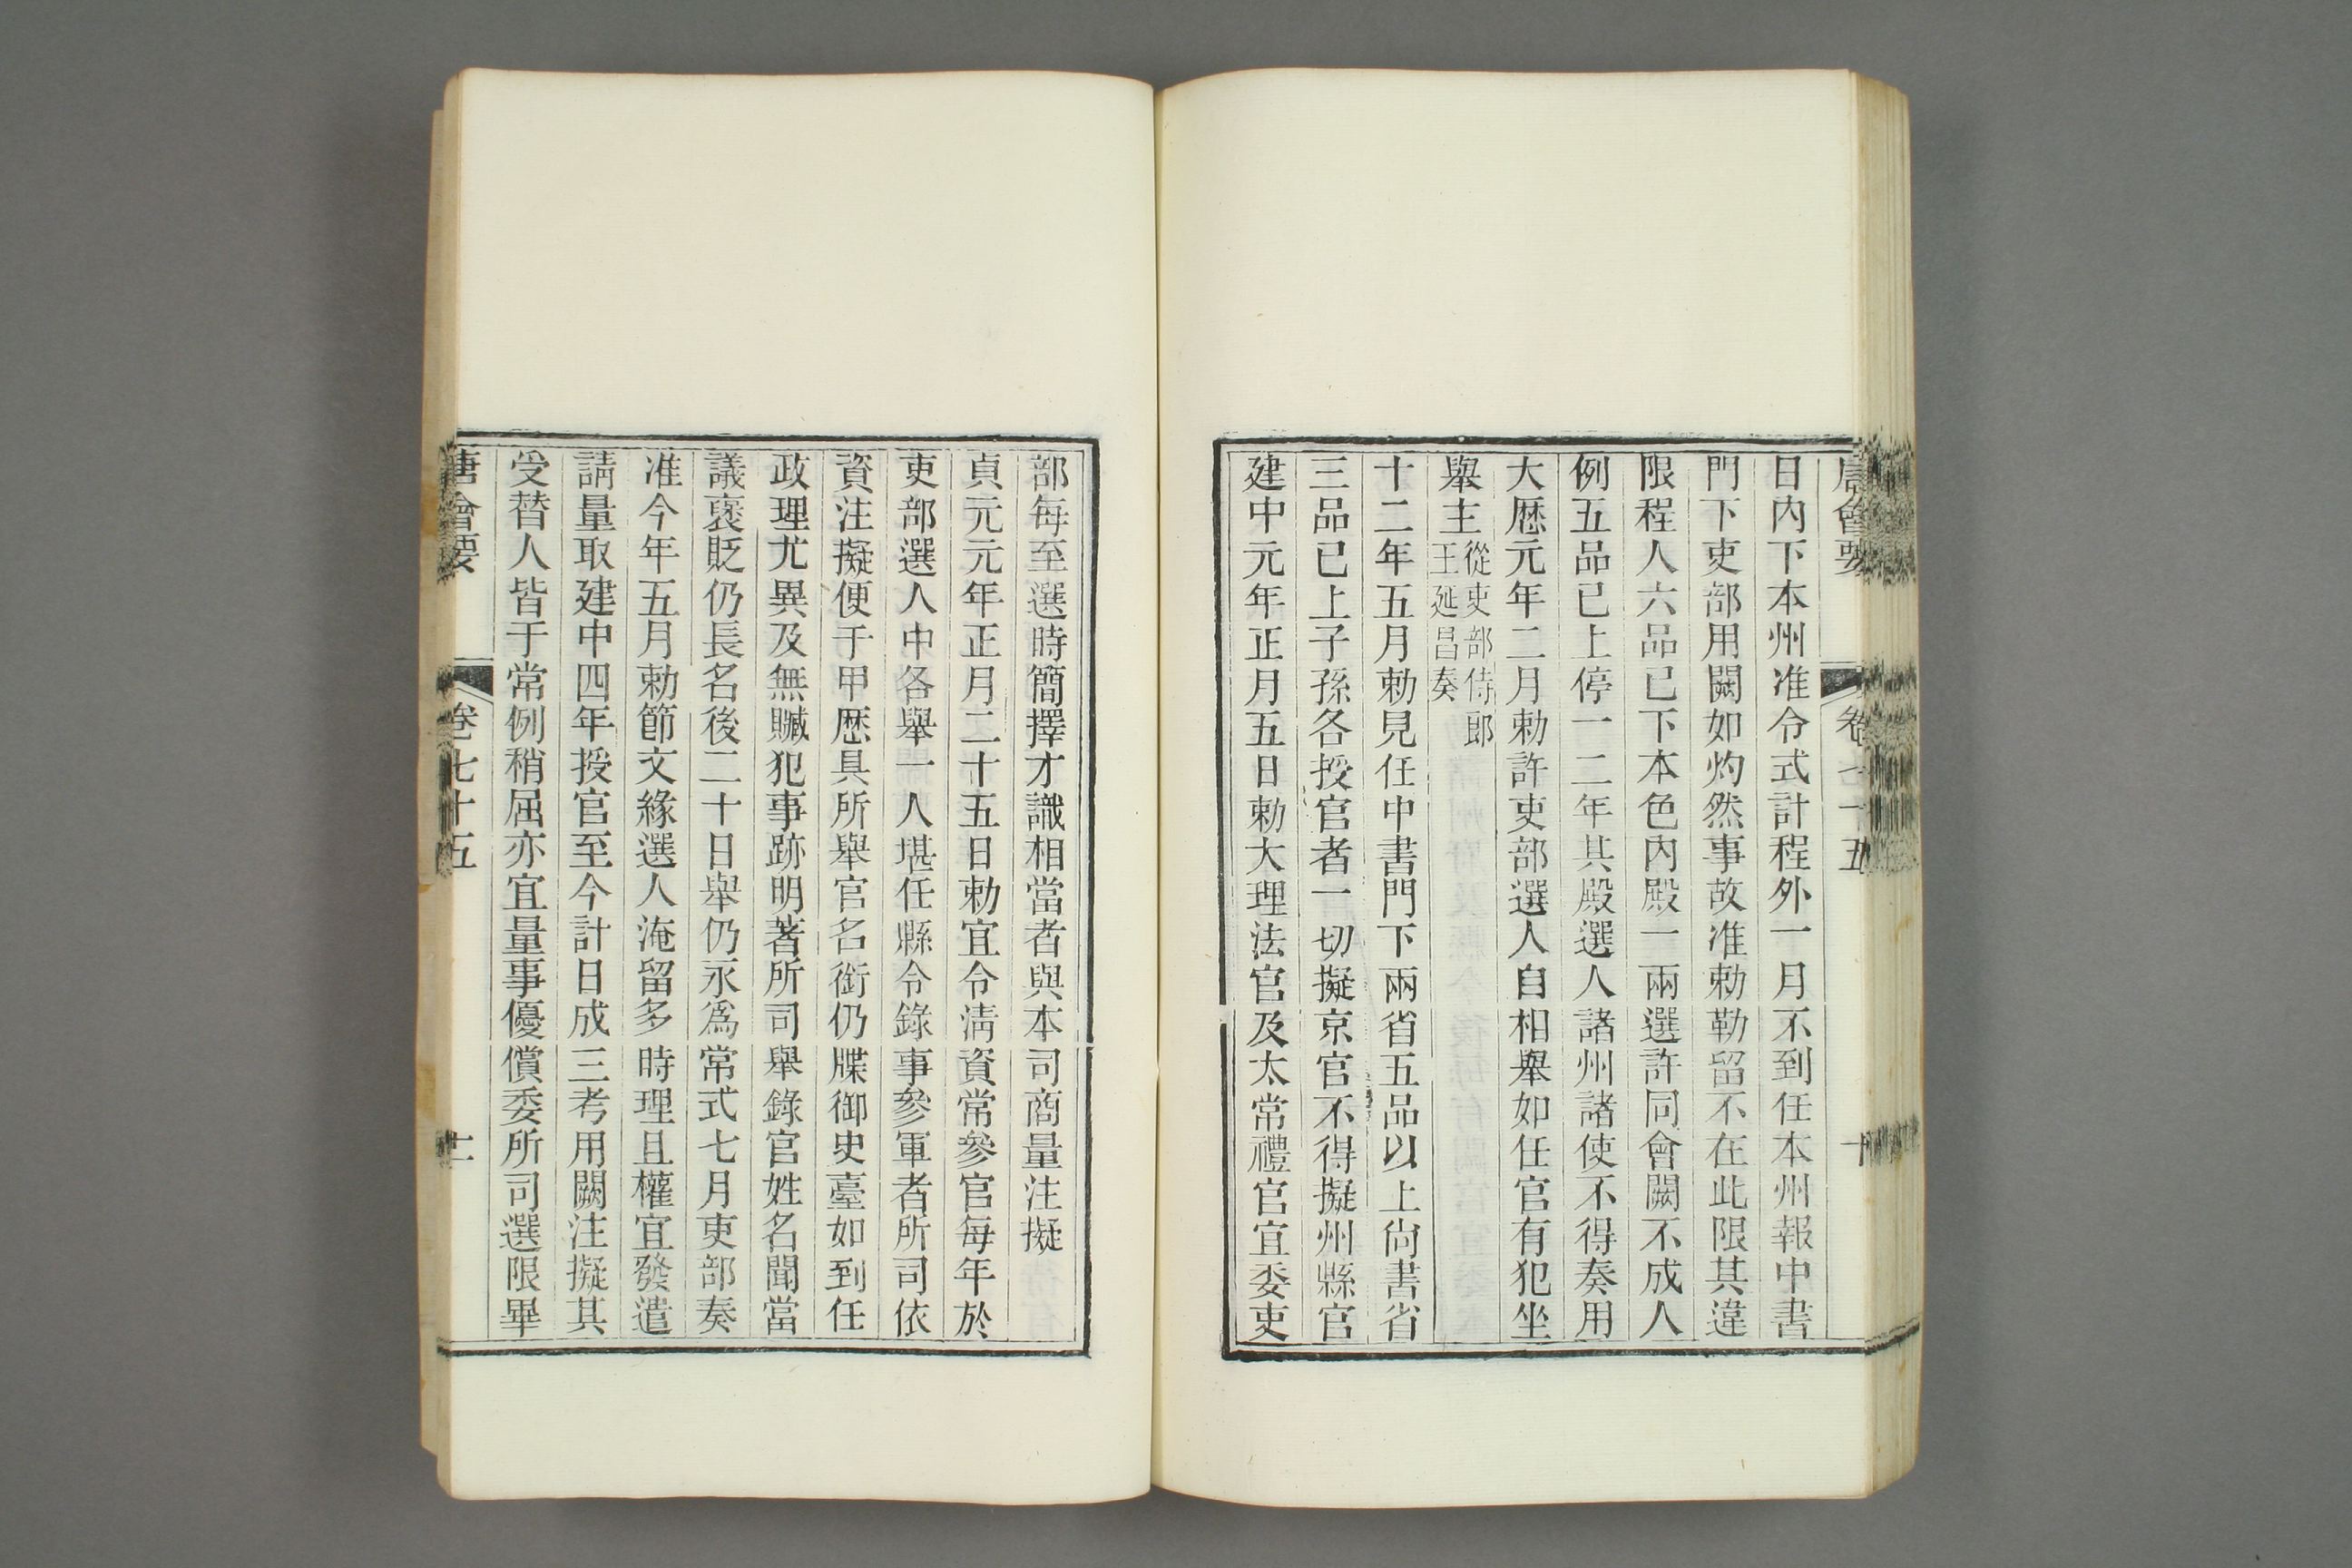 唐會要 卷七十五 十
日內下本州准令式計程外一月不到任本州報中書
門下吏部用闕如灼然事故准勅勒留不在此限其違
限程人六品已下本色內殿一兩選許同會闕不成人
例五品已上停一二年其殿選人諸州諸使不得奏用
大歷元年二月勅許吏部選人自相舉如任官有犯坐
舉主從吏部侍郎王延昌奏
十二年五月勅見任中書門下兩省五品以上尙書省
三品已上子孫各授官者一切擬京官不得擬州縣官
建中元年正月五日勅大理法官及太常禮官宜委吏
部每至選時簡擇才識相當者與本司商量注擬
貞元元年正月二十五日勅宜令淸資常參官每年於
吏部選人中各舉一人堪任縣令錄事參軍者所司依
資注擬便于甲歷具所舉官名銜仍牒御史臺如到任
政理尤異及無贓犯事跡明著所司舉錄官姓名聞當
議褒貶仍長名後二十日舉仍永爲常式七月吏部奏
准今年五月勅節文緣選人淹留多時理且權宜發遣
請量取建中四年授官至今計日成三考用闕注擬其
受替人皆于常例稍屈亦宜量事優償委所司選限畢
唐會要 卷七十五